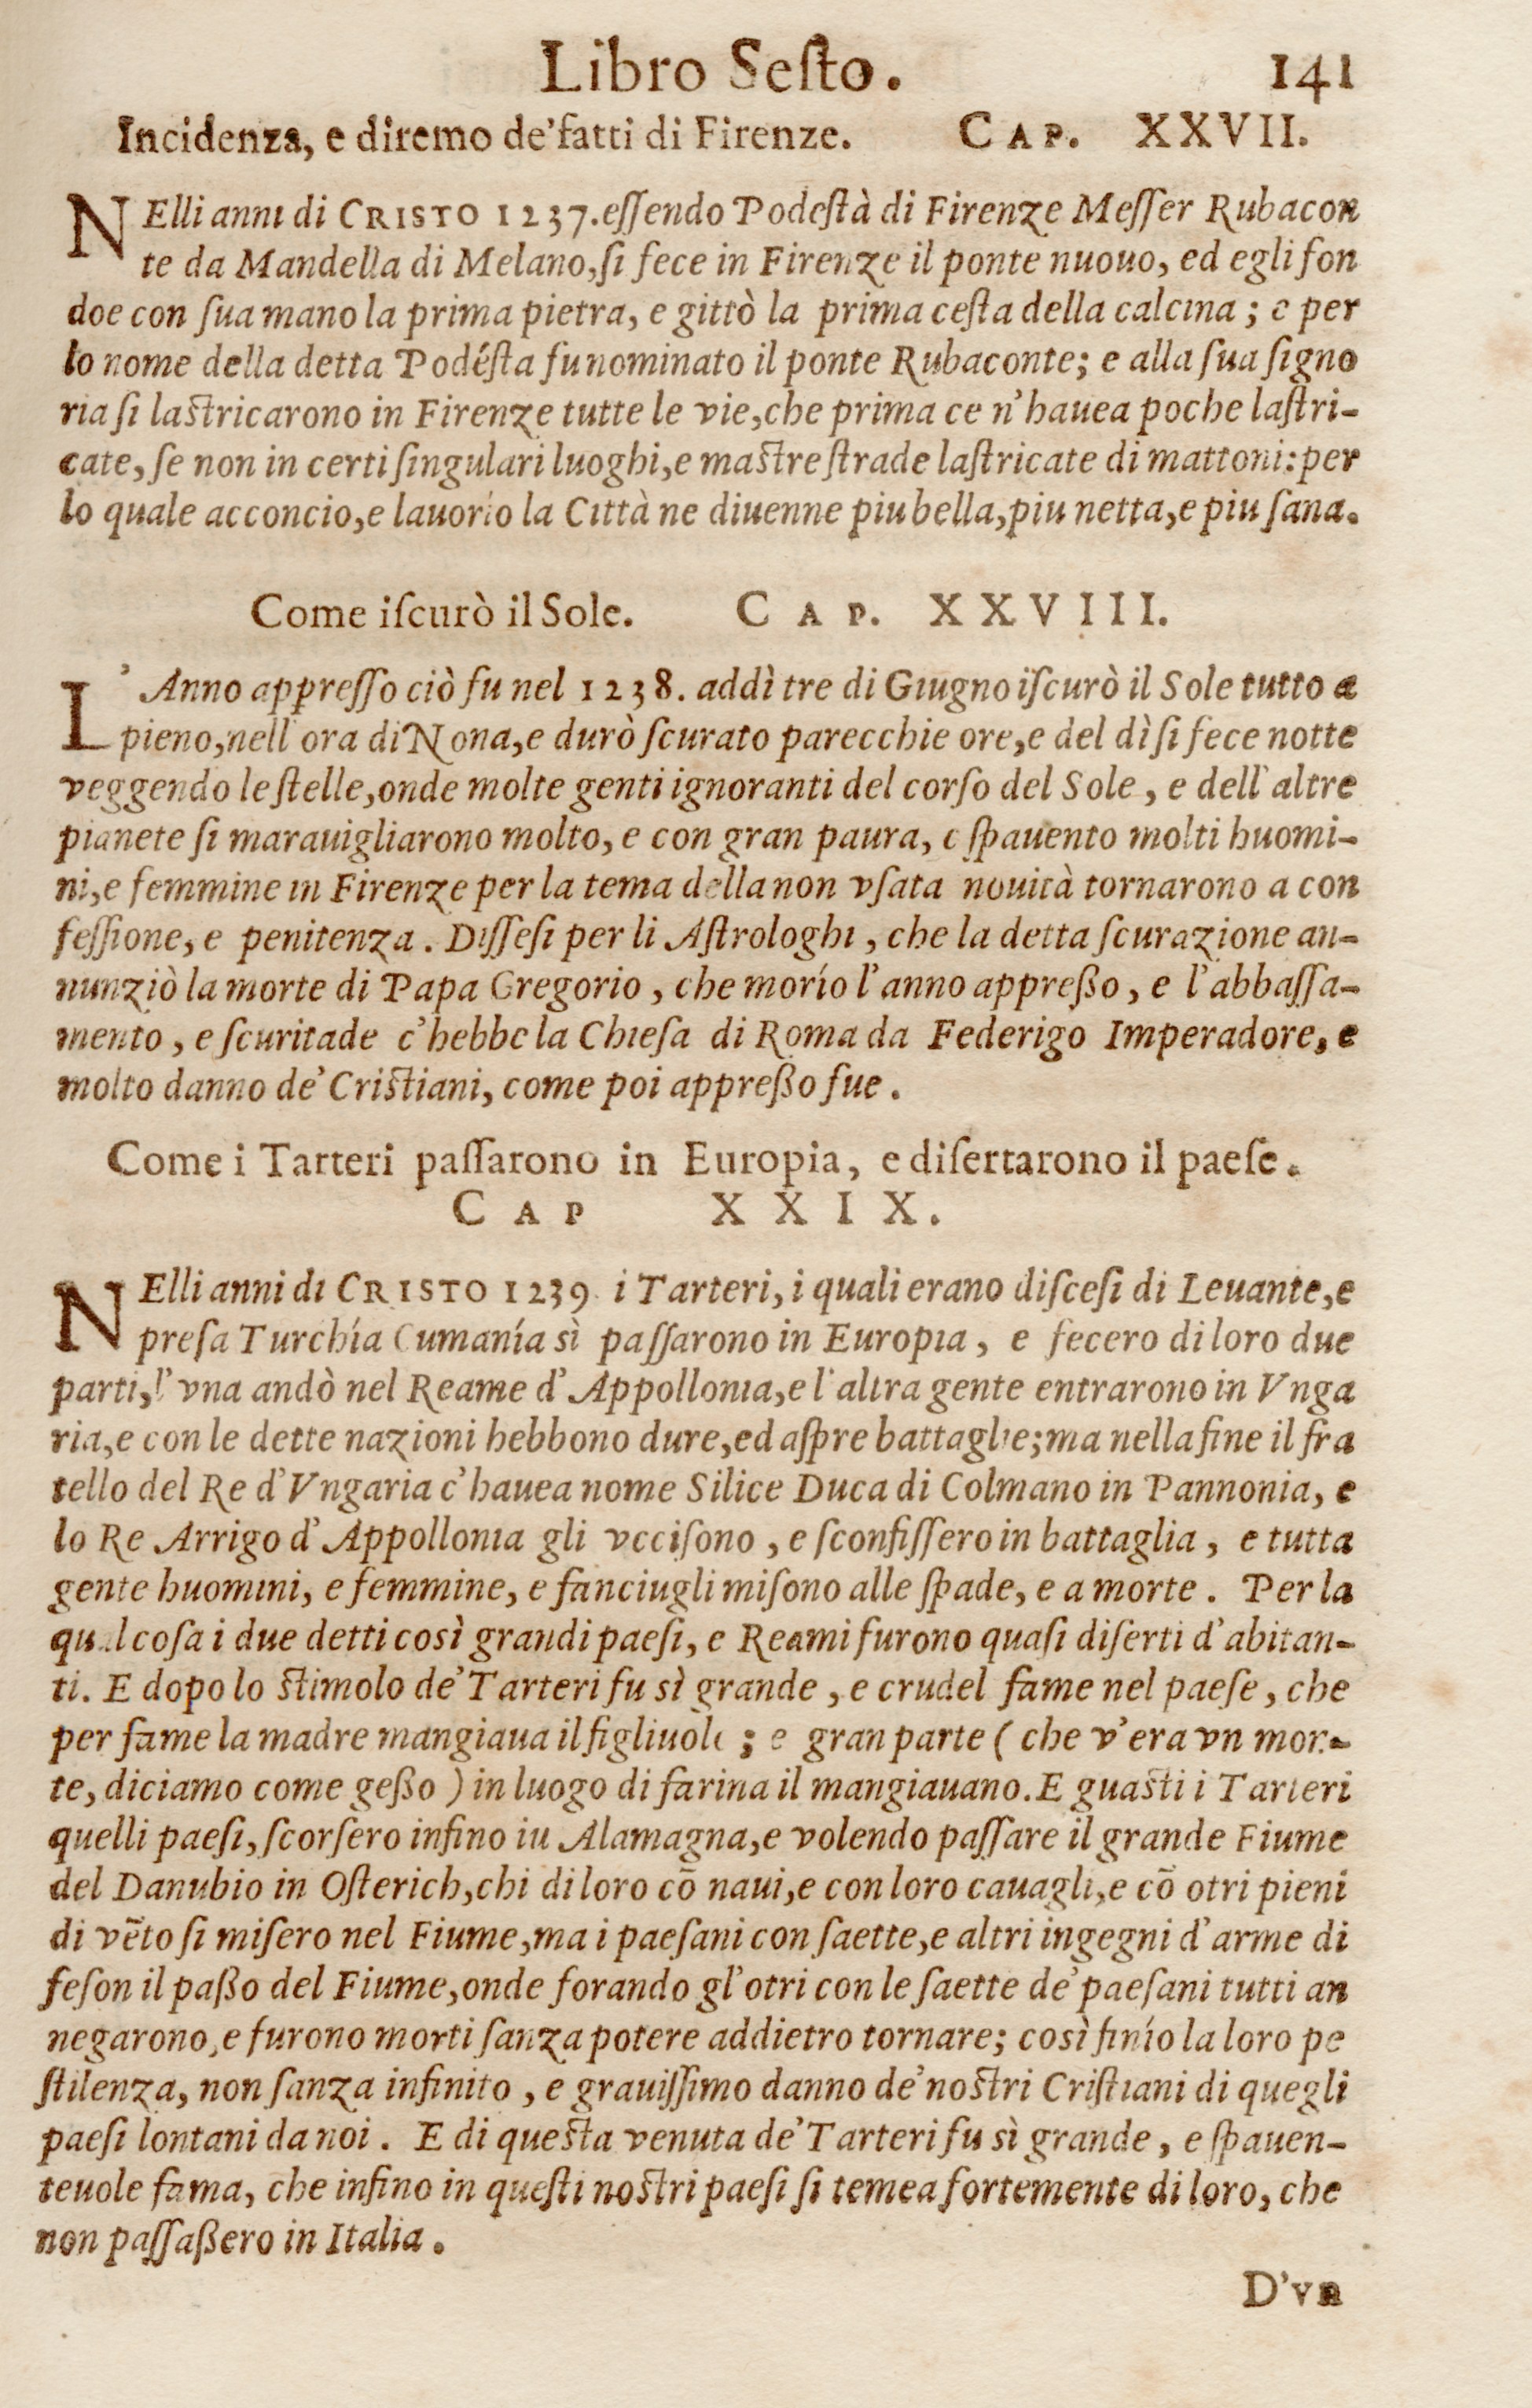 Libro Seſto. 141
Incidenza, e diremo de'fatti di Firenze. CAP. XXVII.
NElli anni di CRISTO 1237. eſſendo Podeſtà di Firenze Meſſer Rubacon
te da Mandella di Melano, ſi fece in Firenze il ponte nuouo, ed egli fon
doe con ſua mano la prima pietra, e gittò la prima ceſta della calcina; e per
lo nome della detta Podéſta fu nominato il ponte Rubaconte; e alla ſua ſigno
ria ſi laſtricarono in Firenze tutte le vie, che prima ce n'hauea poche laſtri-
cate, ſe non in certi ſingulari luoghi, e maſtre ſtrade laſtricate di mattoni: per
lo quale acconcio, e lauorio la Città ne diuenne piu bella, piu netta, e piu ſana.
Come iſcurò il Sole. CAP. XXVIII.
L'Anno appreſſo ciò fu nel 1238. addì tre di Giugno iſcurò il Sole tutto a
pieno, nell'ora di Nona, e durò ſcurato parecchie ore, e del dì ſi fece notte
veggendo le ſtelle, onde molte genti ignoranti del corſo del Sole, e dell'altre
pianete ſi marauigliarono molto, e con gran paura, e ſpauento molti huomi-
ni, e femmine in Firenze per la tema della non vſata nouità tornarono a con
feſſione, e penitenza. Diſſeſi per li Aſtrologhi, che la detta ſcurazione an-
nunziò la morte di Papa Gregorio, che morío l'anno appreßo, e l'abbaſſa-
mento, e ſcuritade c'hebbe la Chieſa di Roma da Federigo Imperadore, e
molto danno de' Criſtiani, come poi appreßo fue.
Come i Tarteri paſſarono in Europia, e diſertarono il paeſe.
CAP XXIX.
NElli anni di CRISTO 1239. i Tarteri, i quali erano diſceſi di Leuante, e
preſa Turchía Cumanía sì paſſarono in Europia, e fecero di loro due
parti, l'vna andò nel Reame d'Appollonia, e l'altra gente entrarono in Vnga
ria, e con le dette nazioni hebbono dure, ed aſpre battaglie; ma nella fine il fra
tello del Re d'Vngaria c'hauea nome Silice Duca di Colmano in Pannonia, e
lo Re Arrigo d'Appollonia gli vcciſono, e ſconfiſſero in battaglia, e tutta
gente huomini, e femmine, e fanciugli miſono alle ſpade, e a morte. Per la
qual coſa i due detti così grandi paeſi, e Reami furono quaſi diſerti d'abitan-
ti. E dopo lo ſtimolo de' Tarteri fu sì grande, e crudel fame nel paeſe, che
per fame la madre mangiaua il figliuolo; e gran parte (che v'era vn mon-
te, diciamo come geßo) in luogo di farina il mangiauano. E guaſti i Tarteri
quelli paeſi, ſcorſero infino iu Alamagna, e volendo paſſare il grande Fiume
del Danubio in Oſterich, chi di loro cō naui, e con loro cauagli, e cō otri pieni
di vēto ſi miſero nel Fiume, ma i paeſani con ſaette, e altri ingegni d'arme di
feſon il paßo del Fiume, onde forando gl'otri con le ſaette de' paeſani tutti an
negarono, e furono morti ſanza potere addietro tornare; così finío la loro pe
ſtilenza, non ſanza infinito, e grauiſſimo danno de' noſtri Criſtiani di quegli
paeſi lontani da noi. E di queſta venuta de' Tarteri fu sì grande, e ſpauen-
teuole fama, che infino in queſti noſtri paeſi ſi temea fortemente di loro, che
non paſſaßero in Italia.
D'vn